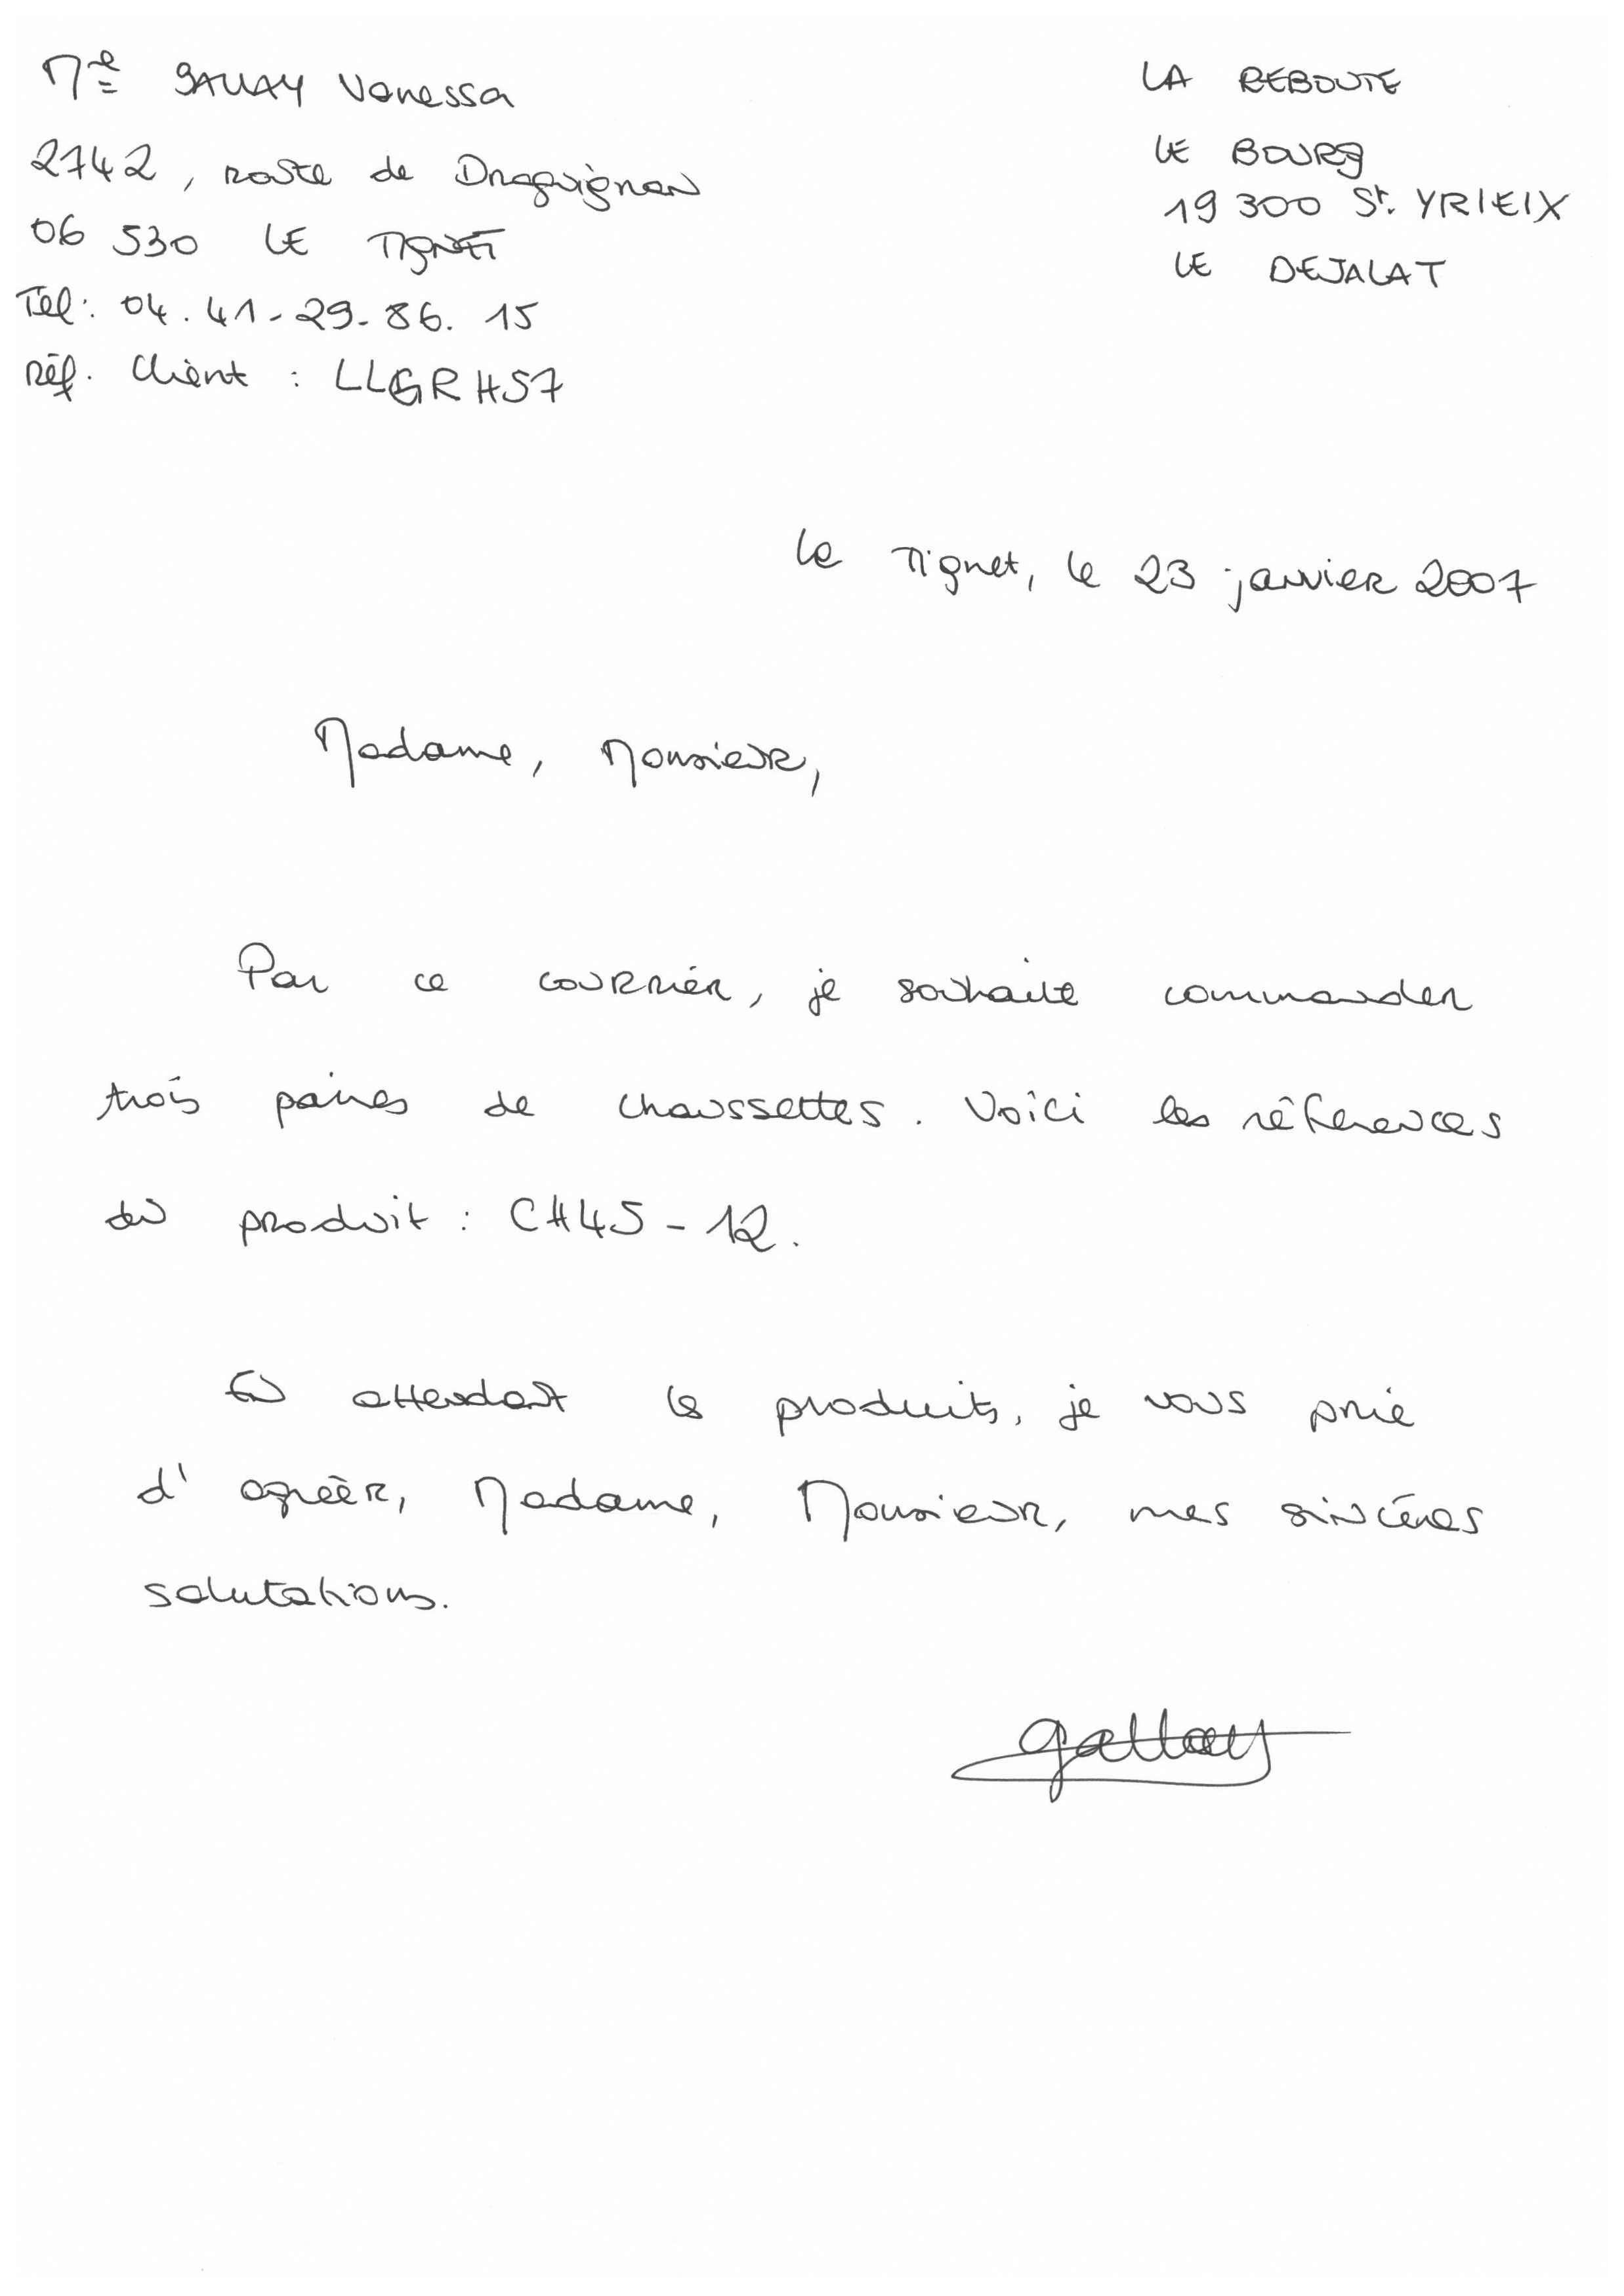 Me GALLAY Vanessa
2742, route de Draguignan
06 530 LE TIGNET
Tél : 04.41-29-86.15
Réf. Client : LLGRH57
LA REBOUTE
LE BOURG
19 300 St. YRIEIX
LE DEJALAT
Le Tignet, le 23 janvier 2007
Madame, Monsieur,
Par ce courrier, je souhaite commander
trois paires de chaussettes. Voici les références
du produit : CH45-12.
En attendant les produits, je vous prie
d'agréer, Madame, Monsieur, mes sincères
salutations.
Gallay